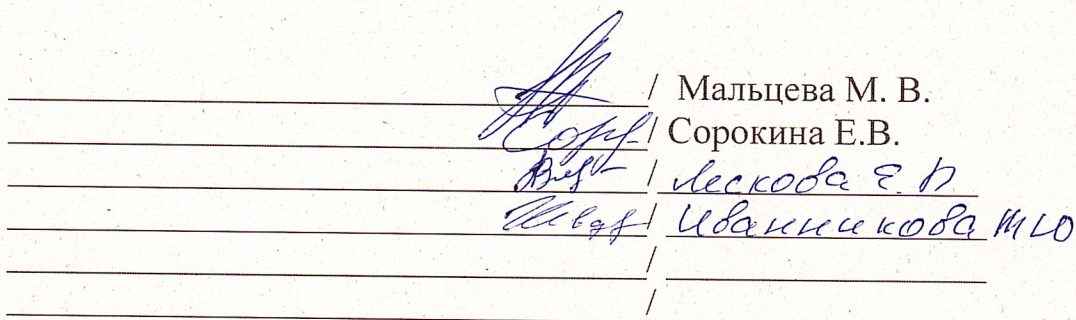 / Мальцева М. В.
/ Сорокина Е.В.
/ Лескова Е. П
/ Иванникова Т Ю
/
/